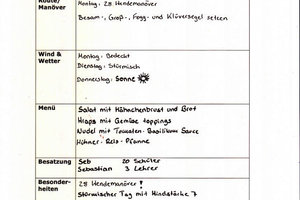 Route/
Manöver
Montag: 28 Wendemanöver
Besam-, Groß-, Fogg- und Klüversegel setzen
Wind &
Wetter
Montag: Bedeckt
Dienstag: Stürmisch
Donnerstag: Sonne
Menü
Salat mit Hähnchenbrust und Brot
Wraps mit Gemüse toppings
Nudel mit Tomaten-Basilikum Sauce
Hühner-Reis-Pfanne
Besatzung
Seb 20 Schüler
Sebastian 3 Lehrer
Besonder-
heiten
28 Wendemanöver!
Stürmischer Tag mit Windstärke 7